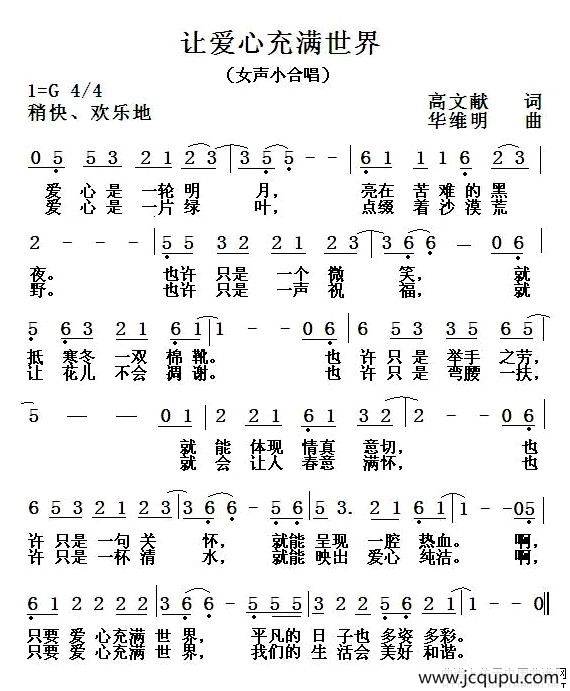 让爱心充满世界
(女声小合唱)
1=G 4/4
高文献 词
稍快、欢乐地
华维明 曲
0 5 5 3 2 1 2 3 | 3 5 5 - - | 6 1 1 1 6 2 3 |
爱 心 是 一轮 明 月, 亮在 苦 难 的 黑
爱 心 是 一片 绿 叶, 点缀 着 沙 漠 荒
2 - - - | 5 5 3 2 2 1 2 3 | 3 6 6 - 0 6 |
夜。 也许 只是 一个 微 笑, 就
野。 也许 只是 一声 祝 福, 就
5 6 3 2 1 6 1 | 1 - - 0 6 | 5 3 3 5 3 6 5 |
抵 寒冬 一双 棉靴。 也 许 只是 举手 之劳,
让 花儿 不会 凋谢。 也 许 只是 弯腰 一扶,
5 — — 0 1 | 2 2 1 6 1 3 2 | 2 - - 0 6 |
就 能 体现 情真 意切, 也
就 会 让人 春意 满怀, 也
6 5 3 2 1 2 3 | 3 6 6 - 0 6 | 5 3. 2 1 6 1 | 1 - - 05 |
许 只是 一句 关 怀, 就能 呈现 一腔 热血。 啊,
许 只是 一杯 清 水, 就能 映出 爱心 纯洁。 啊,
6 1 2 2 2 2 | 3 6 6 - 5 5 5 | 3 2 2 6 2 1 | 1 - - 0 ‖
只要 爱 心充满 世 界, 平凡的 日 子也 多姿 多彩。
只要 爱 心充满 世 界, 我们的 生 活会 美好 和谐。
www.jcqupu.com